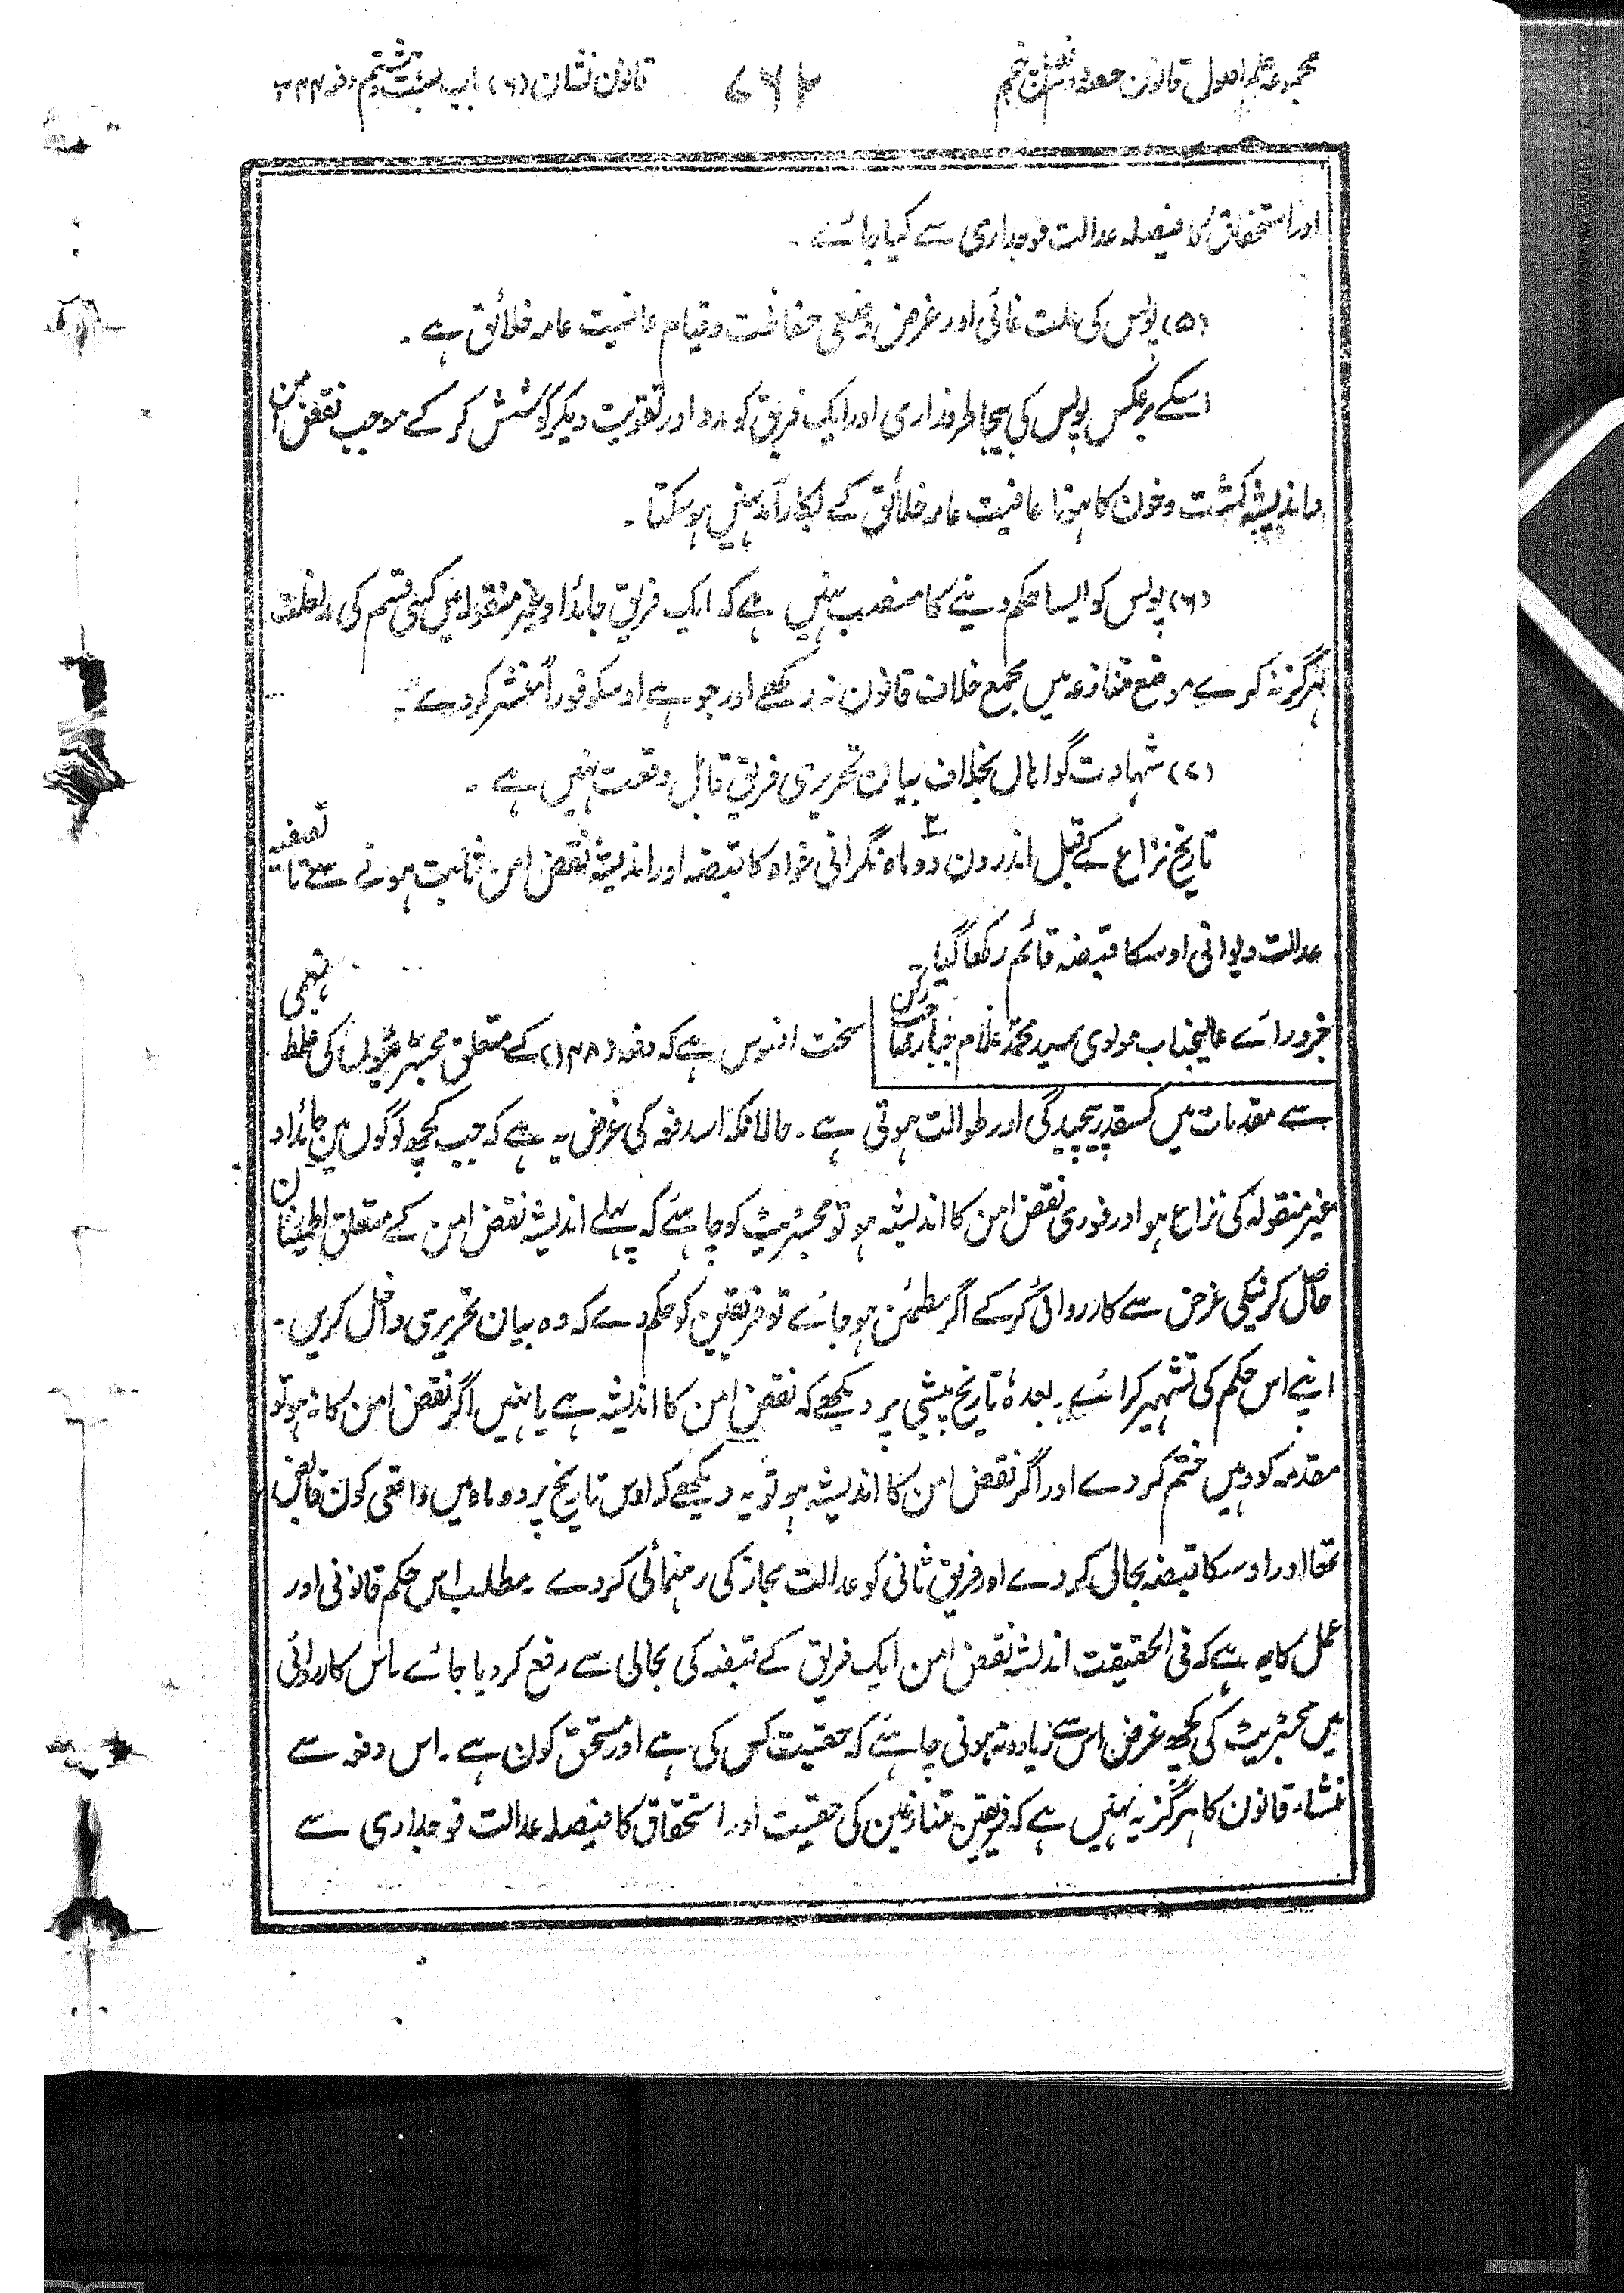 مجموعہ علم اصول قانون حصہ دوم
۷۶۲
قانون نشان (۶) باب بست و ہشتم دفعہ ۳۴۴
اور استحقاق کا فیصلہ عدالت فوجداری سے کیا جائے ۔
(۵) پولس کی علت غائی اور غرض وضعی حفاظت و قیام عافیت عامہ خلائق ہے ۔
اسکے برعکس پولس کی بیجا طرفداری اور ایک فریق کو مدد اور تقویت دیکر کوشش کر کے موجب نقض امن
و اندیشہ کشت و خون کا ہونا عافیت عامہ خلائق کے بکار آمد نہیں ہو سکتا ۔
(۶) پولس کو ایسا حکم دینے کا منصب نہیں ہے کہ ایک فریق جائداد غیر منقولہ میں کسی قسم کی مداخلت
ہرگز نہ کرے موضع متنازعہ میں مجمع خلاف قانون نہ رکھے اور جو ہے اوسکو فوراً منتشر کر دے ۔
(۷) شہادت گواہاں بخلاف بیان تحریری فریق قابل وقعت نہیں ہے ۔
تاریخ نزاع کے قبل اندرون دو ماہ نگرانی خواہ کا قبضہ اور اندیشہ نقض امن ثابت ہونے سے تا تصفیہ
عدالت دیوانی اوسکا قبضہ قائم رکھا گیا ۔
جزو رائے عالیجناب مولوی سید محمد غلام جبار صاحب رکن
سخت افسوس ہے کہ دفعہ (۱۴۸) کے متعلق مجسٹریٹوں کی غلط فہمی
سے مقدمات میں کسقدر پیچیدگی اور طوالت ہوتی ہے ۔ حالانکہ اسدفعہ کی غرض یہ ہے کہ جب کچھ لوگوں میں جائداد
غیر منقولہ کی نزاع ہو اور فوری نقض امن کا اندیشہ ہو تو مجسٹریٹ کو چاہئے کہ پہلے اندیشہ نقض امن کے متعلق اطمینان
حاصل کرنیکی غرض سے کارروائی کر کے اگر مطمئن ہو جائے تو فریقین کو حکم دے کہ وہ بیان تحریری داخل کریں ۔
اپنے اس حکم کی تشہیر کرائے ۔ بعدہٗ تاریخ پیشی پر دیکھے کہ نقض امن کا اندیشہ ہے یا نہیں اگر نقض امن کا نہ ہو تو
مقدمہ کو وہیں ختم کر دے اور اگر نقض امن کا اندیشہ ہو تو یہ دیکھے کہ اوس تاریخ پر دو ماہ میں واقعی کون قابض
تھا اور اوسکا قبضہ بحال کر دے اور فریق ثانی کو عدالت مجاز کی رہنمائی کر دے ۔ مطلب اس حکم قانونی اور
عمل کا یہ ہے کہ فی الحقیقت اندیشہ نقض امن ایک فریق کے قبضہ کی بحالی سے رفع کر دیا جائے ۔ اس کارروائی
میں مجسٹریٹ کی کچھ غرض اس سے زیادہ نہ ہونی چاہئے کہ حقیت کس کی ہے اور مستحق کون ہے ۔ اس دفعہ سے
منشاء قانون کا ہرگز یہ نہیں ہے کہ فریقین متنازعین کی حقیت اور استحقاق کا فیصلہ عدالت فوجداری سے